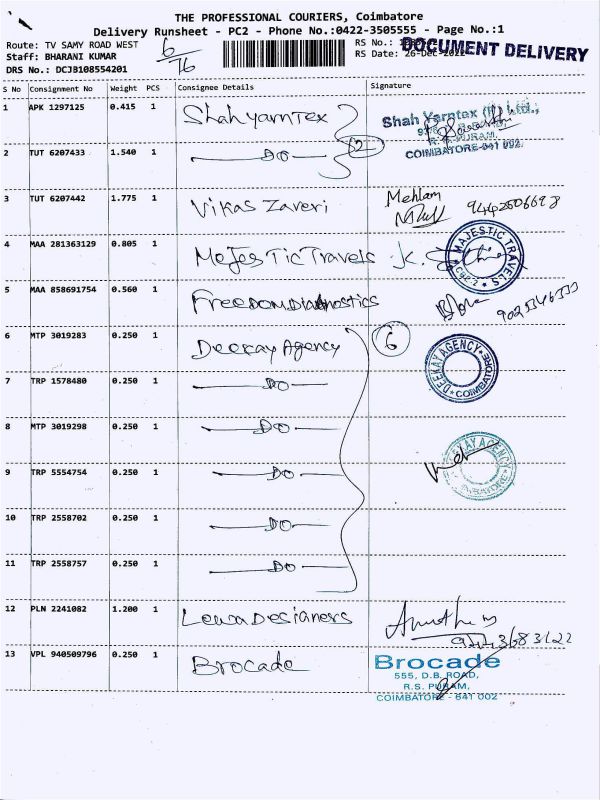 THE PROFESSIONAL COURIERS, Coimbatore
Delivery Runsheet - PC2 - Phone No.:0422-3505555 - Page No.:1
Route: TV SAMY ROAD WEST
6/76
RS No.:
DOCUMENT DELIVERY
Staff: BHARANI KUMAR
RS Date: 26-Dec-2022
DRS No.: DCJB108554201
S No Consignment No Weight PCS Consignee Details Signature
1 APK 1297125 0.415 1 Shah yarntex Shah Yarntex (P) Ltd.,
R.S. PURAM,
COIMBATORE-641 002.
2 TUT 6207433 1.540 1 DO 2
3 TUT 6207442 1.775 1 Vikas Zaveri Mehlam
4 MAA 281363129 0.805 1 Majestic Travels MAJESTIC TRAVELS CBE-2
5 MAA 858691754 0.560 1 Freedom Diagnostics
6 MTP 3019283 0.250 1 Deekay Agency 6 DEEKAY AGENCY COIMBATORE
7 TRP 1578480 0.250 1 DO
8 MTP 3019298 0.250 1 DO
9 TRP 5554754 0.250 1 DO DEEKAY AGENCY COIMBATORE
10 TRP 2558702 0.250 1 DO
11 TRP 2558757 0.250 1 DO
12 PLN 2241082 1.200 1 Designers
13 VPL 940509796 0.250 1 Brocade Brocade
555, D.B. ROAD,
R.S. PURAM,
COIMBATORE - 641 002